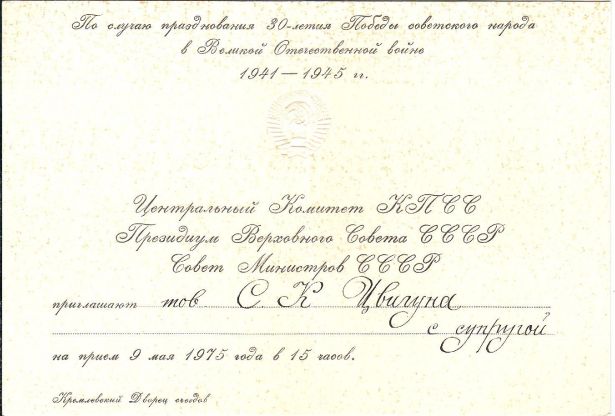 По случаю празднования 30-летия Победы советского народа
в Великой Отечественной войне
1941—1945 гг.
Центральный Комитет КПСС
Президиум Верховного Совета СССР
Совет Министров СССР
приглашают тов С К Цвигуна
с супругой
на прием 9 мая 1975 года в 15 часов.
Кремлевский Дворец съездов